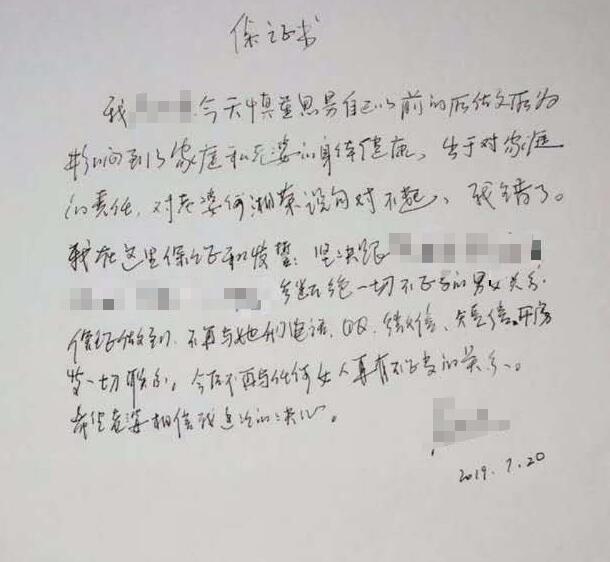 保证书
我 今天慎重思量自己以前的所作所为
影响到了家庭和老婆的身体健康、出于对家庭
的责任,对老婆何湘菜说句对不起、我错了。
我在这里保证和发誓:坚决跟
断绝一切不正当的男女关系.
保证做到,不再与她们电话、QQ、微信、短信、开房
发一切联系,今后不再与任何女人再有不正当的关系、
希望老婆相信我这次的决心。
2019.7.20